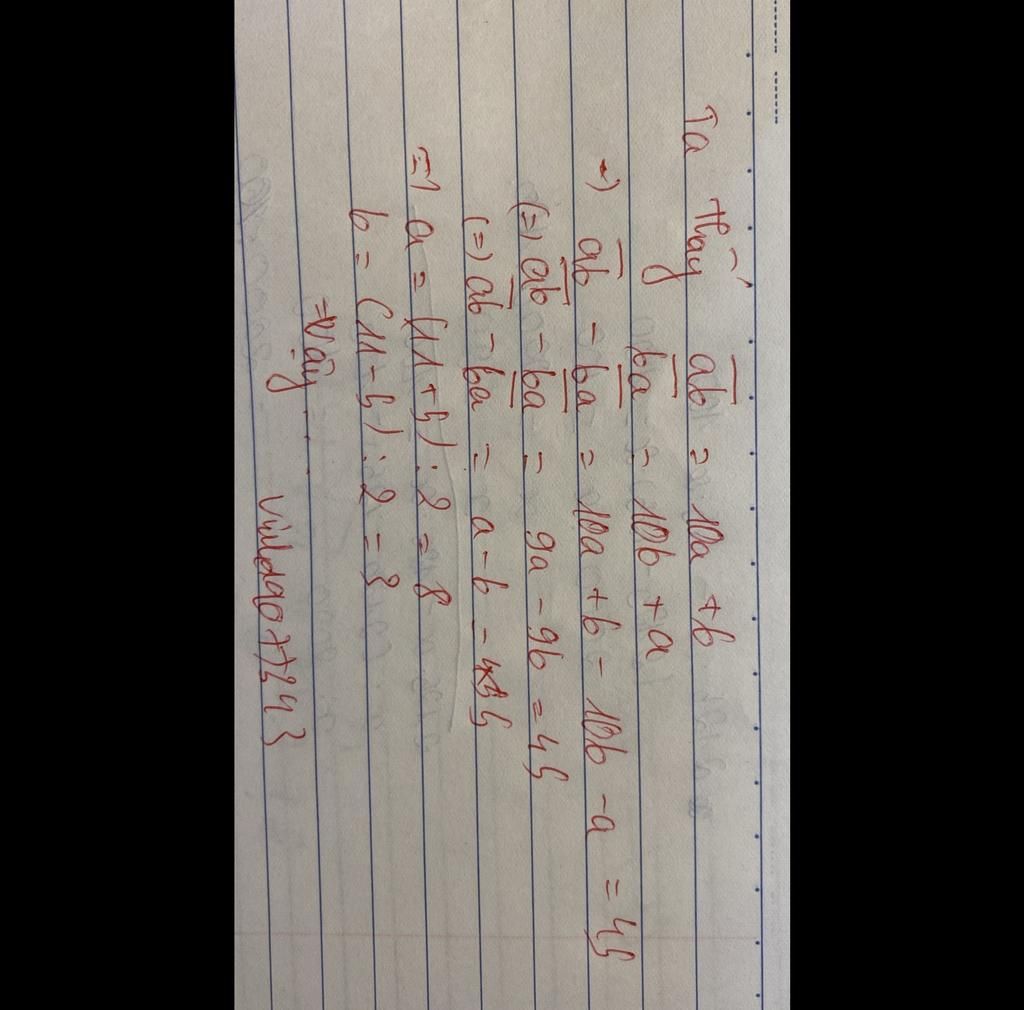 Ta thấy ab = 10a + b
ba = 10b + a
=) ab - ba = 10a + b - 10b - a = 45
(=) ab - ba = 9a - 9b = 45
(=) ab - ba = a - b = 5
=) a = (11 + 5) : 2 = 8
b = (11 - 5) : 2 = 3
=) Vậy ...